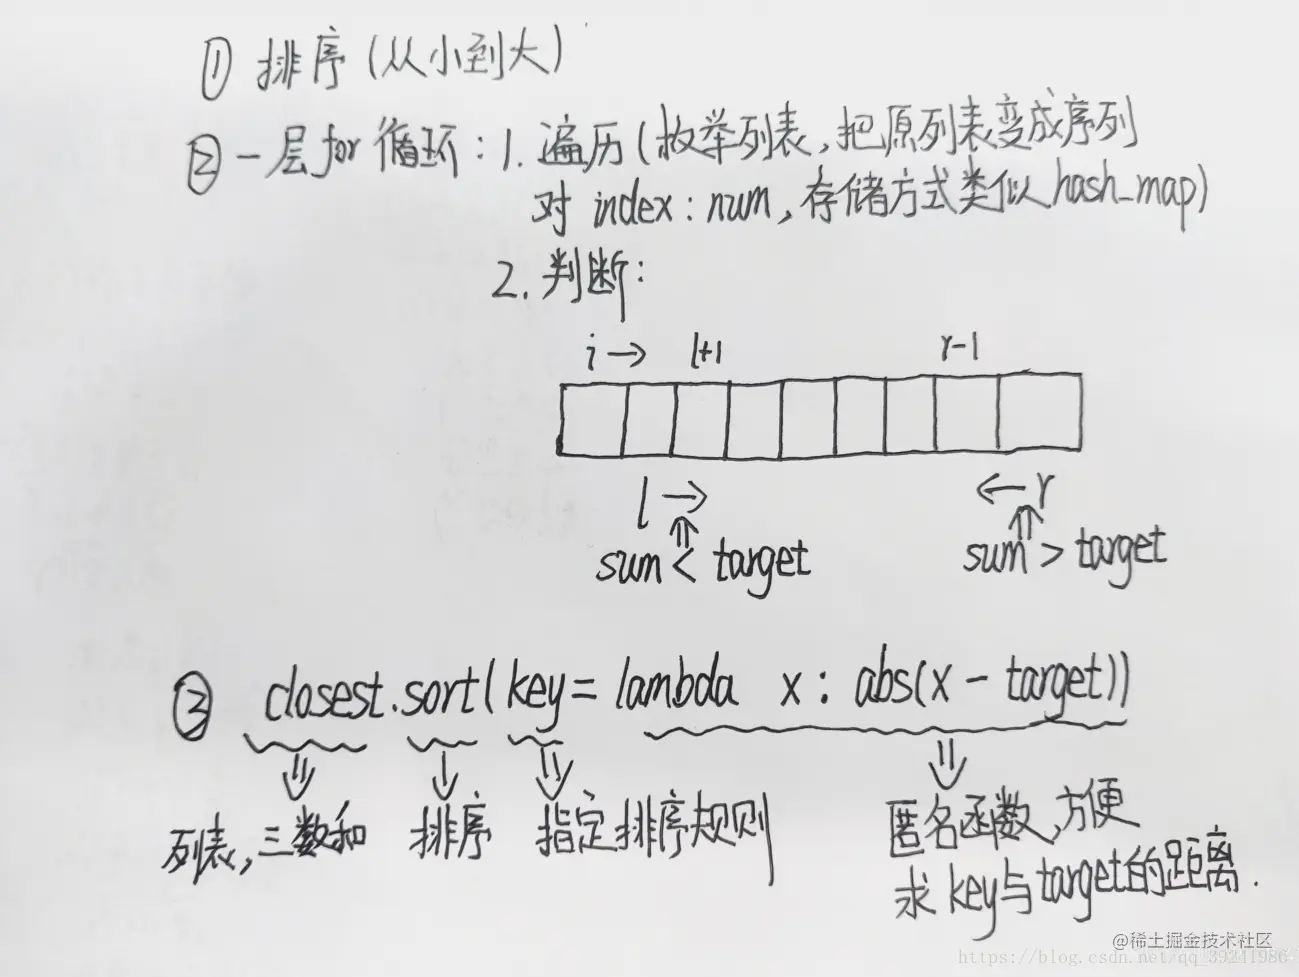 ① 排序(从小到大)
② 一层for循环:1. 遍历(枚举列表,把原列表变成序列
对 index:num,存储方式类似hash_map)
2. 判断:
i→ l+1 r-1
l→ ←r
sum < target sum > target
③ closest.sort(key=lambda x: abs(x-target))
列表,三数和 排序 指定排序规则 匿名函数,方便
求key与target的距离.
@稀土掘金技术社区
https://blog.csdn.net/qq_39241986